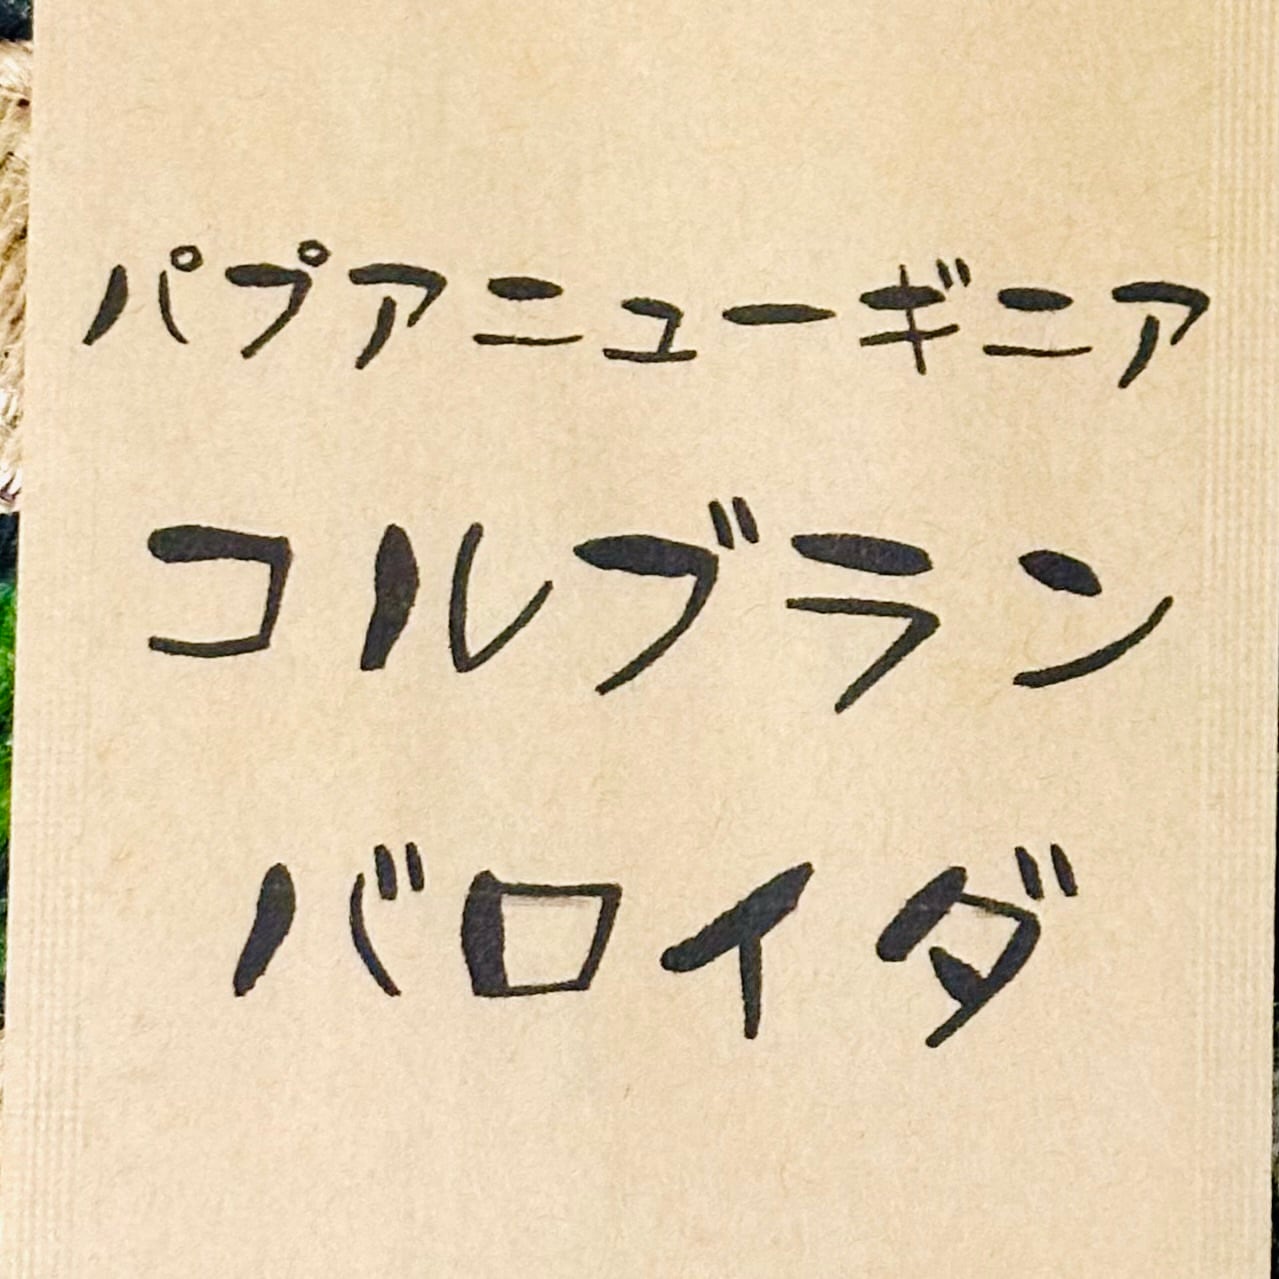 パプアニューギニア
コルブラン
バロイダ